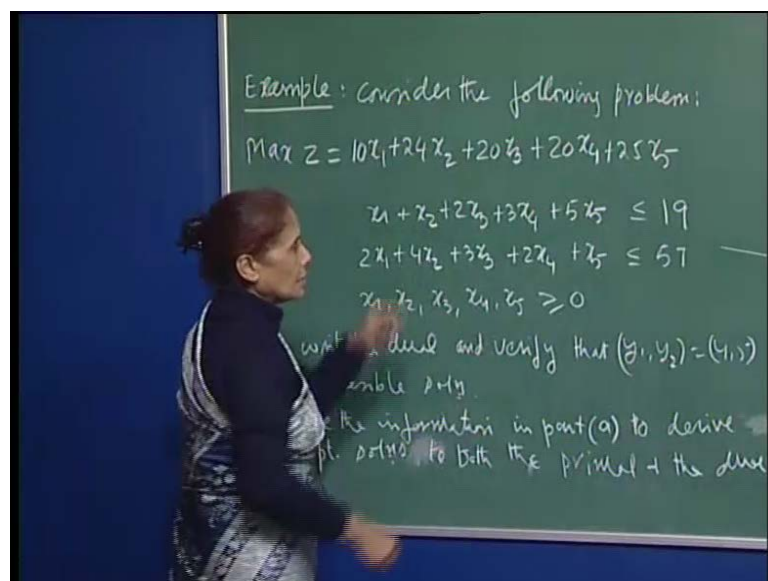 Example: Consider the following problem:
Max Z = 10x₁+24x₂+20x₃+20x₄+25x₅
x₁+x₂+2x₃+3x₄+5x₅ ≤ 19
2x₁+4x₂+3x₃+2x₄+x₅ ≤ 57
x₁, x₂, x₃, x₄, x₅ ≥ 0
dual and verify that (y₁, y₂) = (4, 5)
soln.
the information in part (a) to derive
solns to both the primal + the dual